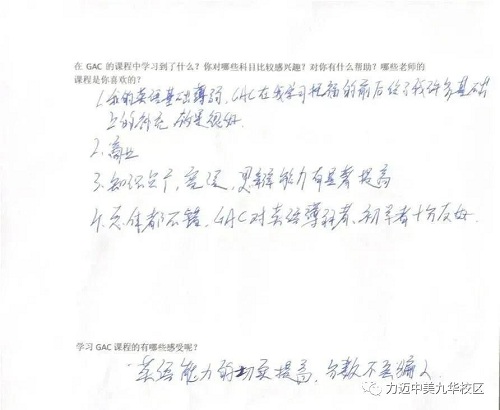 在 GAC 的课程中学习到了什么？你对哪些科目比较感兴趣？对你有什么帮助？哪些老师的
课程是你喜欢的？
1.我的英语基础薄弱，GAC在我学习托福的前后给了我许多基础
上的补充 的是很好.
2.商业
3.知识点广，宽泛，思辩能力有显著提高
4.总体都不错，GAC对英语薄弱者、初学者十分友好.
学习 GAC 课程的有哪些感受呢？
英语能力的提高，分数不会骗人
力迈中美九华校区